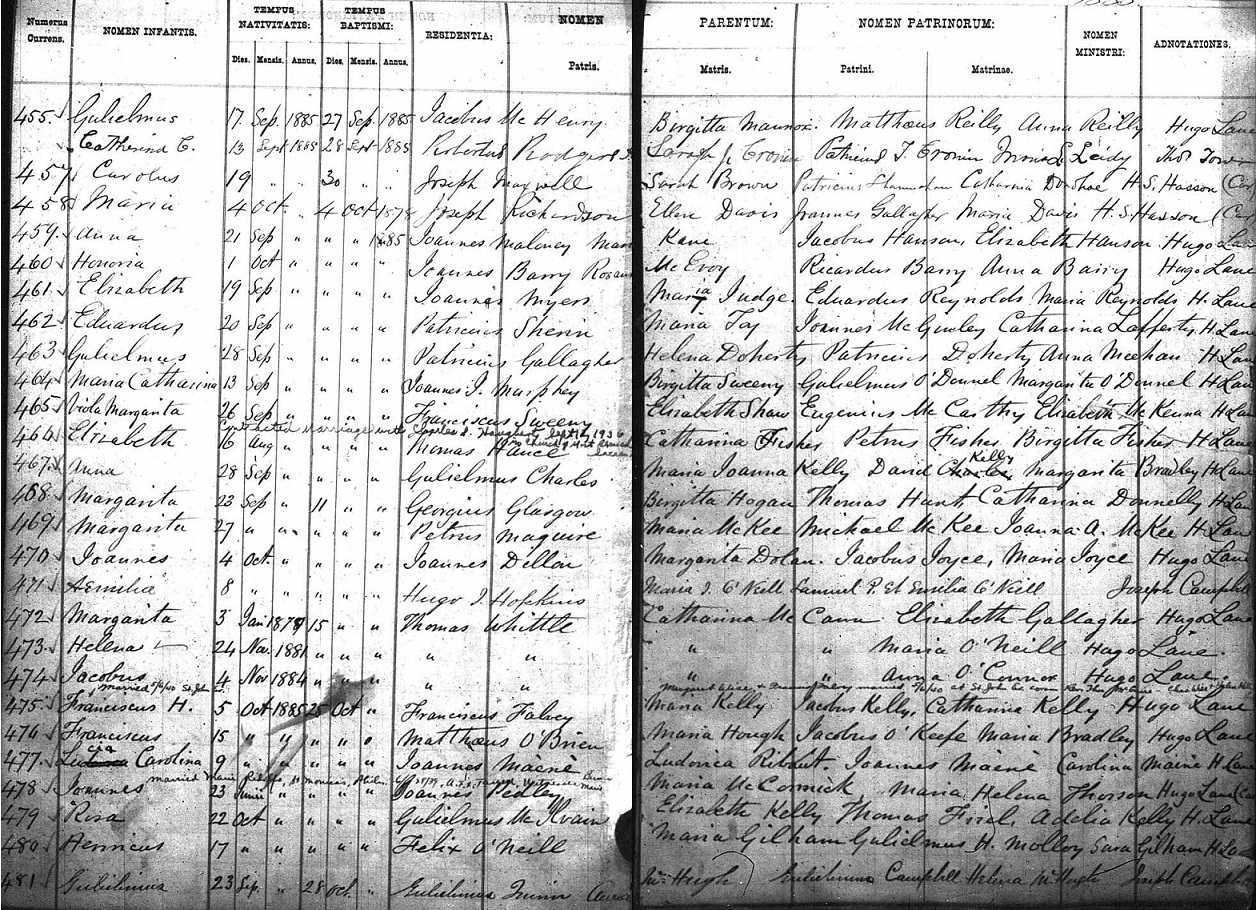 Numerus Currens. NOMEN INFANTIS. TEMPUS NATIVITATIS: TEMPUS BAPTISMI: RESIDENTIA: NOMEN PARENTUM: NOMEN PATRINORUM: NOMEN MINISTRI: ADNOTATIONES.
Dies. Mensis. Annus. Dies. Mensis. Annus. Patris. Matris. Patrini. Matrinae.
455. Gulielmus 17 Sep. 1885 27 Sep. 1885 Jacobus Mc Henry Birgitta Matthæus Reilly Anna Reilly Hugo Lane
Catherina C. 13 Sept 1885 28 Sept 1885 Robertus Rodgers Sarah J. Cronin Patricius T. Cronin Leidy Thos
457 Carolus 19 " " 30 " " Joseph Maxwell Sarah Brown Patricius Catharina Donohoe H. S. Hasson
458 Maria 4 Oct. " 4 Oct 1878 Joseph Richardson Ellen Davis Joannes Gallagher Maria Davis H. S. Hasson
459. Anna 21 Sep " " " 1885 Joannes Maloney Mar Kane Jacobus Hanson, Elizabeth Hanson Hugo Lane
460 Honoria 1 Oct " " " " Joannes Barry Rosan McEvoy Ricardus Barry Anna Barry Hugo Lane
461 Elizabeth 19 Sep " " " " Joannes Myers Maria Judge. Eduardus Reynolds Maria Reynolds H. Lane
462 Eduardus 20 Sep " " " " Patricius Sherin Maria Joannes McGinley Catharina Lafferty, H. Lane
463 Gulielmus 28 Sep " " " " Patricius Gallagher Helena Doherty Patricius Doherty Anna Meehan H. Lane
464 Maria Catharina 13 Sep " " " " Joannes J. Murphey Birgitta Sweeny Gulielmus O'Donnel Margarita O'Donnel H. Lane
465 Viola Margarita 26 Sep " " " " Franciscus Sweeny Elizabeth Shaw Eugenius McCarthy Elizabeth McKenna H. Lane
Contracted marriage with Charles Sept 12, 1936
466 Elizabeth 16 Aug " " " " Thomas Hance Catharina Fisher Petrus Fisher Birgitta Fisher H. Lane
467. Anna 28 Sep " " " " Gulielmus Charles Maria Joanna Kelly David Kelly Margarita Bradley H. Lane
468. Margarita 23 Sep " 11 " " Georgius Glasgow Birgitta Hogan Thomas Hunt Catharina Donnelly H. Lane
469. Margarita 27 " " " " " Petrus Maguire Maria McKee Michael McKee Joanna A. McKee H. Lane
470 Joannes 4 Oct. " " " " Joannes Dillon Margarita Dolan. Jacobus Joyce, Maria Joyce Hugo Lane
471 Aemilia 8 " " " " " Hugo J. Hopkins Maria J. O'Neill Samuel P. Et Emilia O'Neill Joseph Campbell
472 Margarita 3 Jan 15 " " Thomas Whittle Catharina Mc Cann Elizabeth Gallagher Hugo Lane
473. Helena 24 Nov. 1881 " " " " " " " Maria O'Neill Hugo Lane.
474 Jacobus 4 Nov 1884 " " " " " " " Anna O'Connor Hugo Lane.
married St. John
475. Franciscus H. 5 Oct 1885 25 Oct " Franciscus Falvey Maria Kelly Jacobus Kelly, Catharina Kelly Hugo Lane
476 Franciscus 15 " " " " " Matthæus O'Brien Maria Hough Jacobus O'Keefe Maria Bradley Hugo Lane
477. Carolina 9 " " " " " Joannes Mainé Ludovica Joannes Mainé Carolina Mainé H. Lane
married Marie
478 Joannes 23 Junii " " " " Joannes Pedley Maria McCormick Maria Helena Thosson Hugo Lane
479 Rosa 22 Oct " " " " Gulielmus McIlvain Elizabeth Kelly Thomas Adelia Kelly H. Lane
480 Henricus 17 " " " " " Felix O'Neill Maria Gilham Gulielmus H. Molloy Sara Gilham H. Lane
481 Gulielmus 23 Sep. " 28 Oct. " Gulielmus Quinn McHugh Gulielmus Campbell Helena McHugh Joseph Campbell